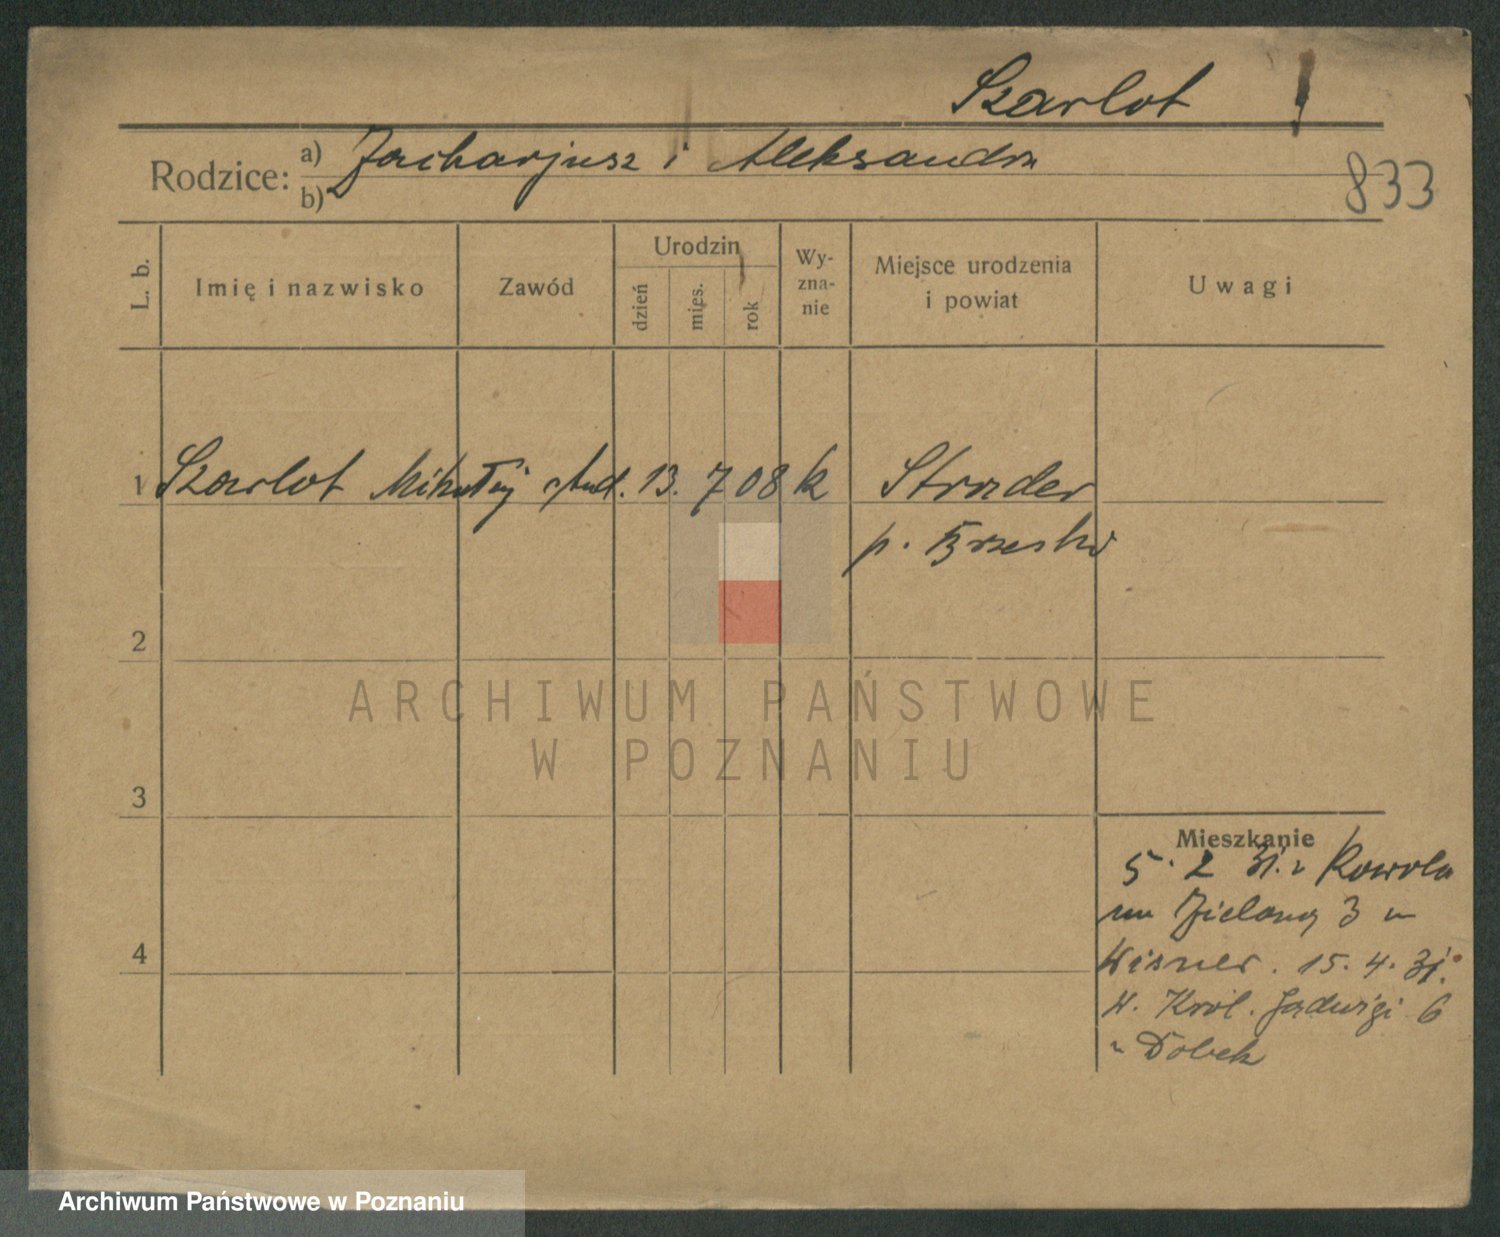 Szarlot
Rodzice: a) Zacharjusz i Aleksandra
b)
833
L. b.
Imię i nazwisko
Zawód
Urodzin
dzień
mies.
rok
Wy-
zna-
nie
Miejsce urodzenia
i powiat
Uwagi
1 Szarlot Mikołaj stud. 13. 7 08 k
p.
2
3
4
Mieszkanie
5. 2 31.
Zieloną 3 u
15. 4. 31.
Król. Jadwigi 6
Dobek
ARCHIWUM PAŃSTWOWE
W POZNANIU
Archiwum Państwowe w Poznaniu